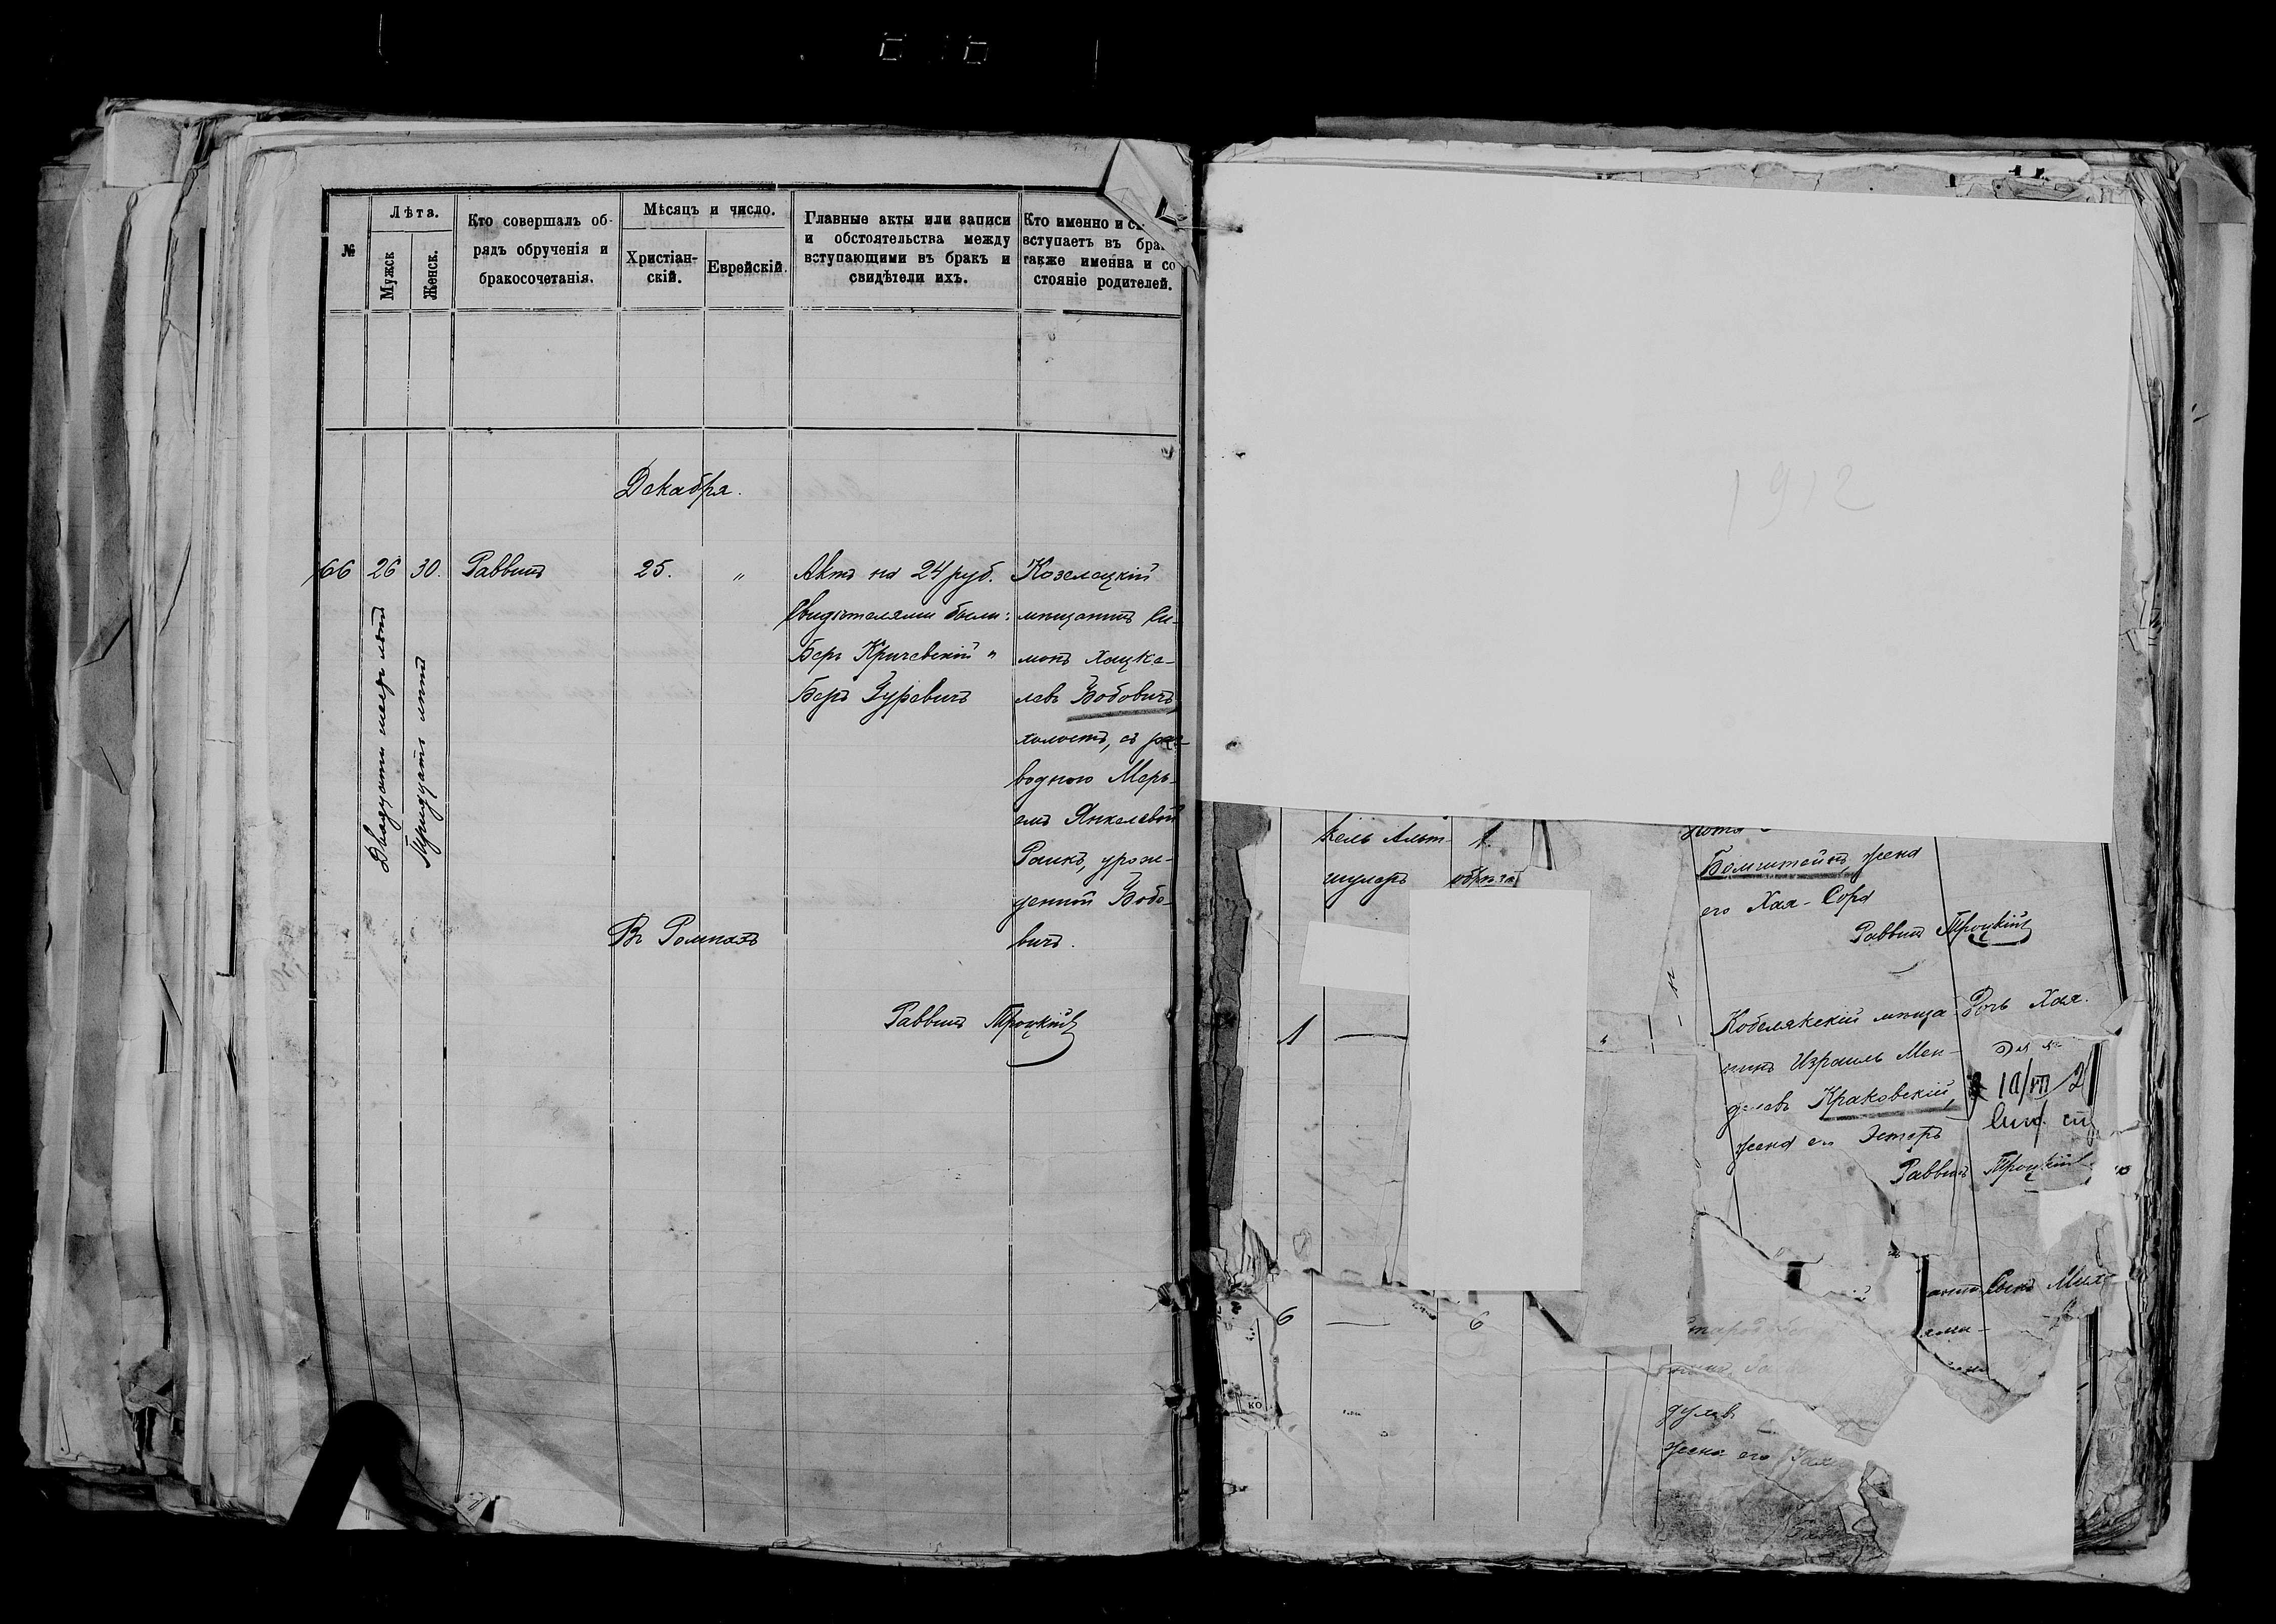 №
Лѣта.
Мужск
Женск.
Кто совершалъ об-
рядъ обрученія и
бракосочетанія.
Мѣсяцъ и число.
Христіан-
скій.
Еврейскій.
Главные акты или записи
и обстоятельства между
вступающими въ бракъ и
свидѣтели ихъ.
Кто именно и
вступаетъ въ
также имена и со
стояніе родителей.
Декабря.
66 26 30. Раввинъ 25. „
Двадцати шесть лѣтъ
Тридцать лѣтъ
Актъ на 24 руб.
Свидѣтелями были:
Беръ Кричевскій и
Беръ Гуревичъ
Козелецкій
мѣщанинъ Си-
монъ Хацке-
левъ Бобовичъ
холостъ, съ раз-
водною Мерь-
емъ Янкелевой
Раикъ, урож-
денной Бобо-
вичъ.
Въ Ромнахъ
Раввинъ Троцкій
1912
кель Альт-
шулеръ
1.
жена
его Хая-Сора
Раввинъ Троцкій
1 —
Кобелякскій мѣща-
нинъ Израиль Мен-
Краковскій,
жена его Эстеръ
Дочь Хая.
Раввинъ Троцкій
6 — 6
Сынъ
жена его
ко